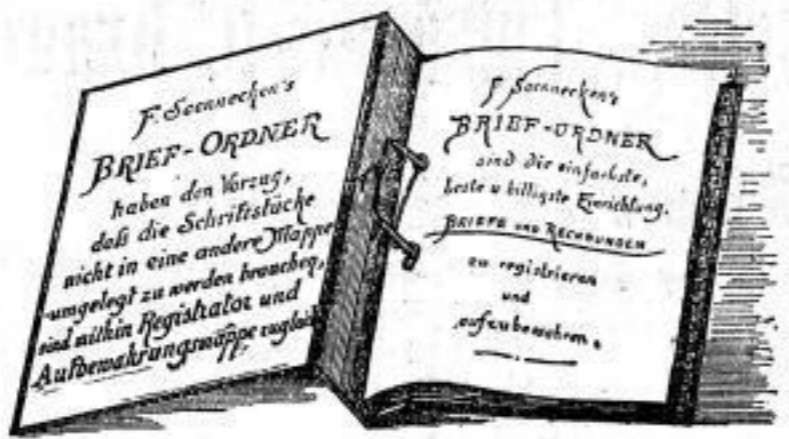 F. Soennecken's
BRIEF-ORDNER
haben den Vorzug,
daß die Schriftstücke
nicht in eine andere Mappe
umgelegt zu werden brauchen,
sind mithin Registrator und
Aufbewahrungsmappe zugleich
F. Soennecken's
BRIEF-ORDNER
sind die einfachste,
beste u billigste Einrichtung,
BRIEFE UND RECHNUNGEN
zu registrieren
und
aufzubewahren.